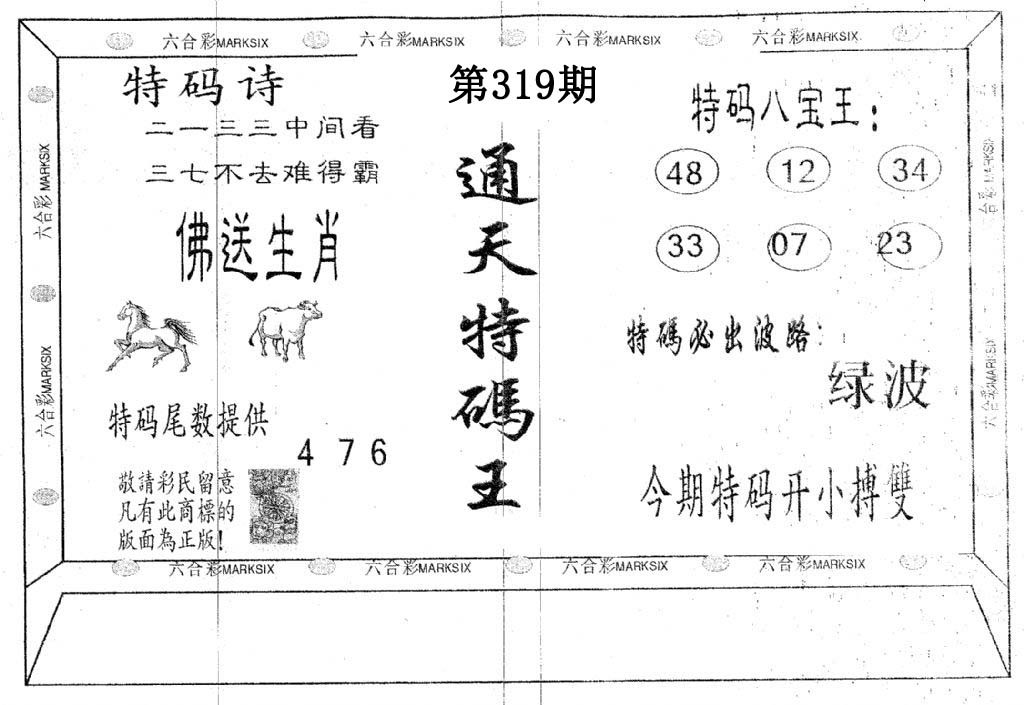 六合彩MARKSIX 六合彩MARKSIX 六合彩MARKSIX 六合彩MARKSIX
第319期
通天特碼王
特码诗
二一三三中间看
三七不去难得霸
佛送生肖
特码尾数提供
4 7 6
敬請彩民留意
凡有此商標的
版面為正版!
特码八宝王:
48 12 34
33 07 23
特碼必出波路:
绿波
今期特码开小搏雙
六合彩MARKSIX
六合彩MARKSIX
六合彩MARKSIX
六合彩MARKSIX
六合彩MARKSIX 六合彩MARKSIX 六合彩MARKSIX 六合彩MARKSIX